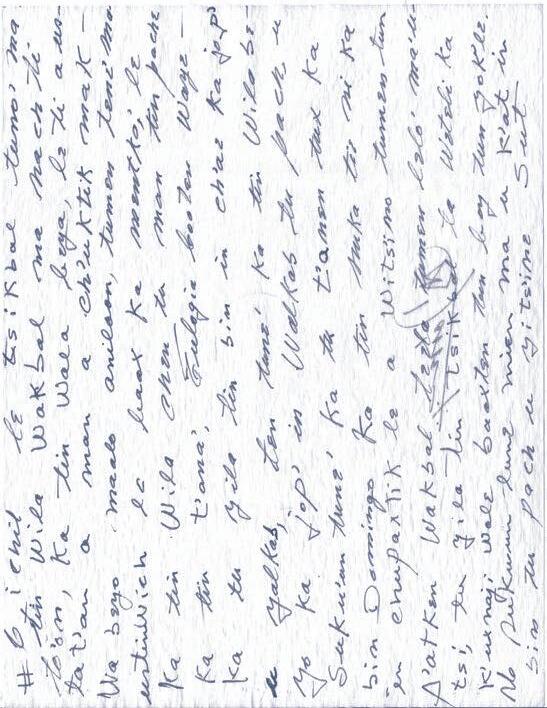 # 6 ichil le tsikbal tuno' ma
tin Wila Wakbal ma nach ti
to'on, Ka tin Wala beya, le ti a us-
tat'an a man a ch'uktik mak-
Wa beyo maalo anilaon, tumen teni ma
intinwich le baax Ka mentko, le
Ka tin Wila chen tu man tin pach
Ka tin t'ana', Eulogia booten Waye-
ka tu yila tin bin in ch'ae Ka jop'
u yalkab, ten tune' ka tin Wilabe-
yo ka jop' in Walkab tu pach u
Suku'un tune', Ka tu t'anen tux ka
bin Domingo Ka tin nuka tin ni ka
in chupaxtik le a Witsino tumen tun
A'atken Wakbal tumen lelo' ma u-
tsi, tu yila tin tsikba ta Weteli ka
K'uxnaji Wale baaxten tun bey tun yokle.
No Sukuun tune' mien ma u K'at in
bin tu pach u yitsine Sut